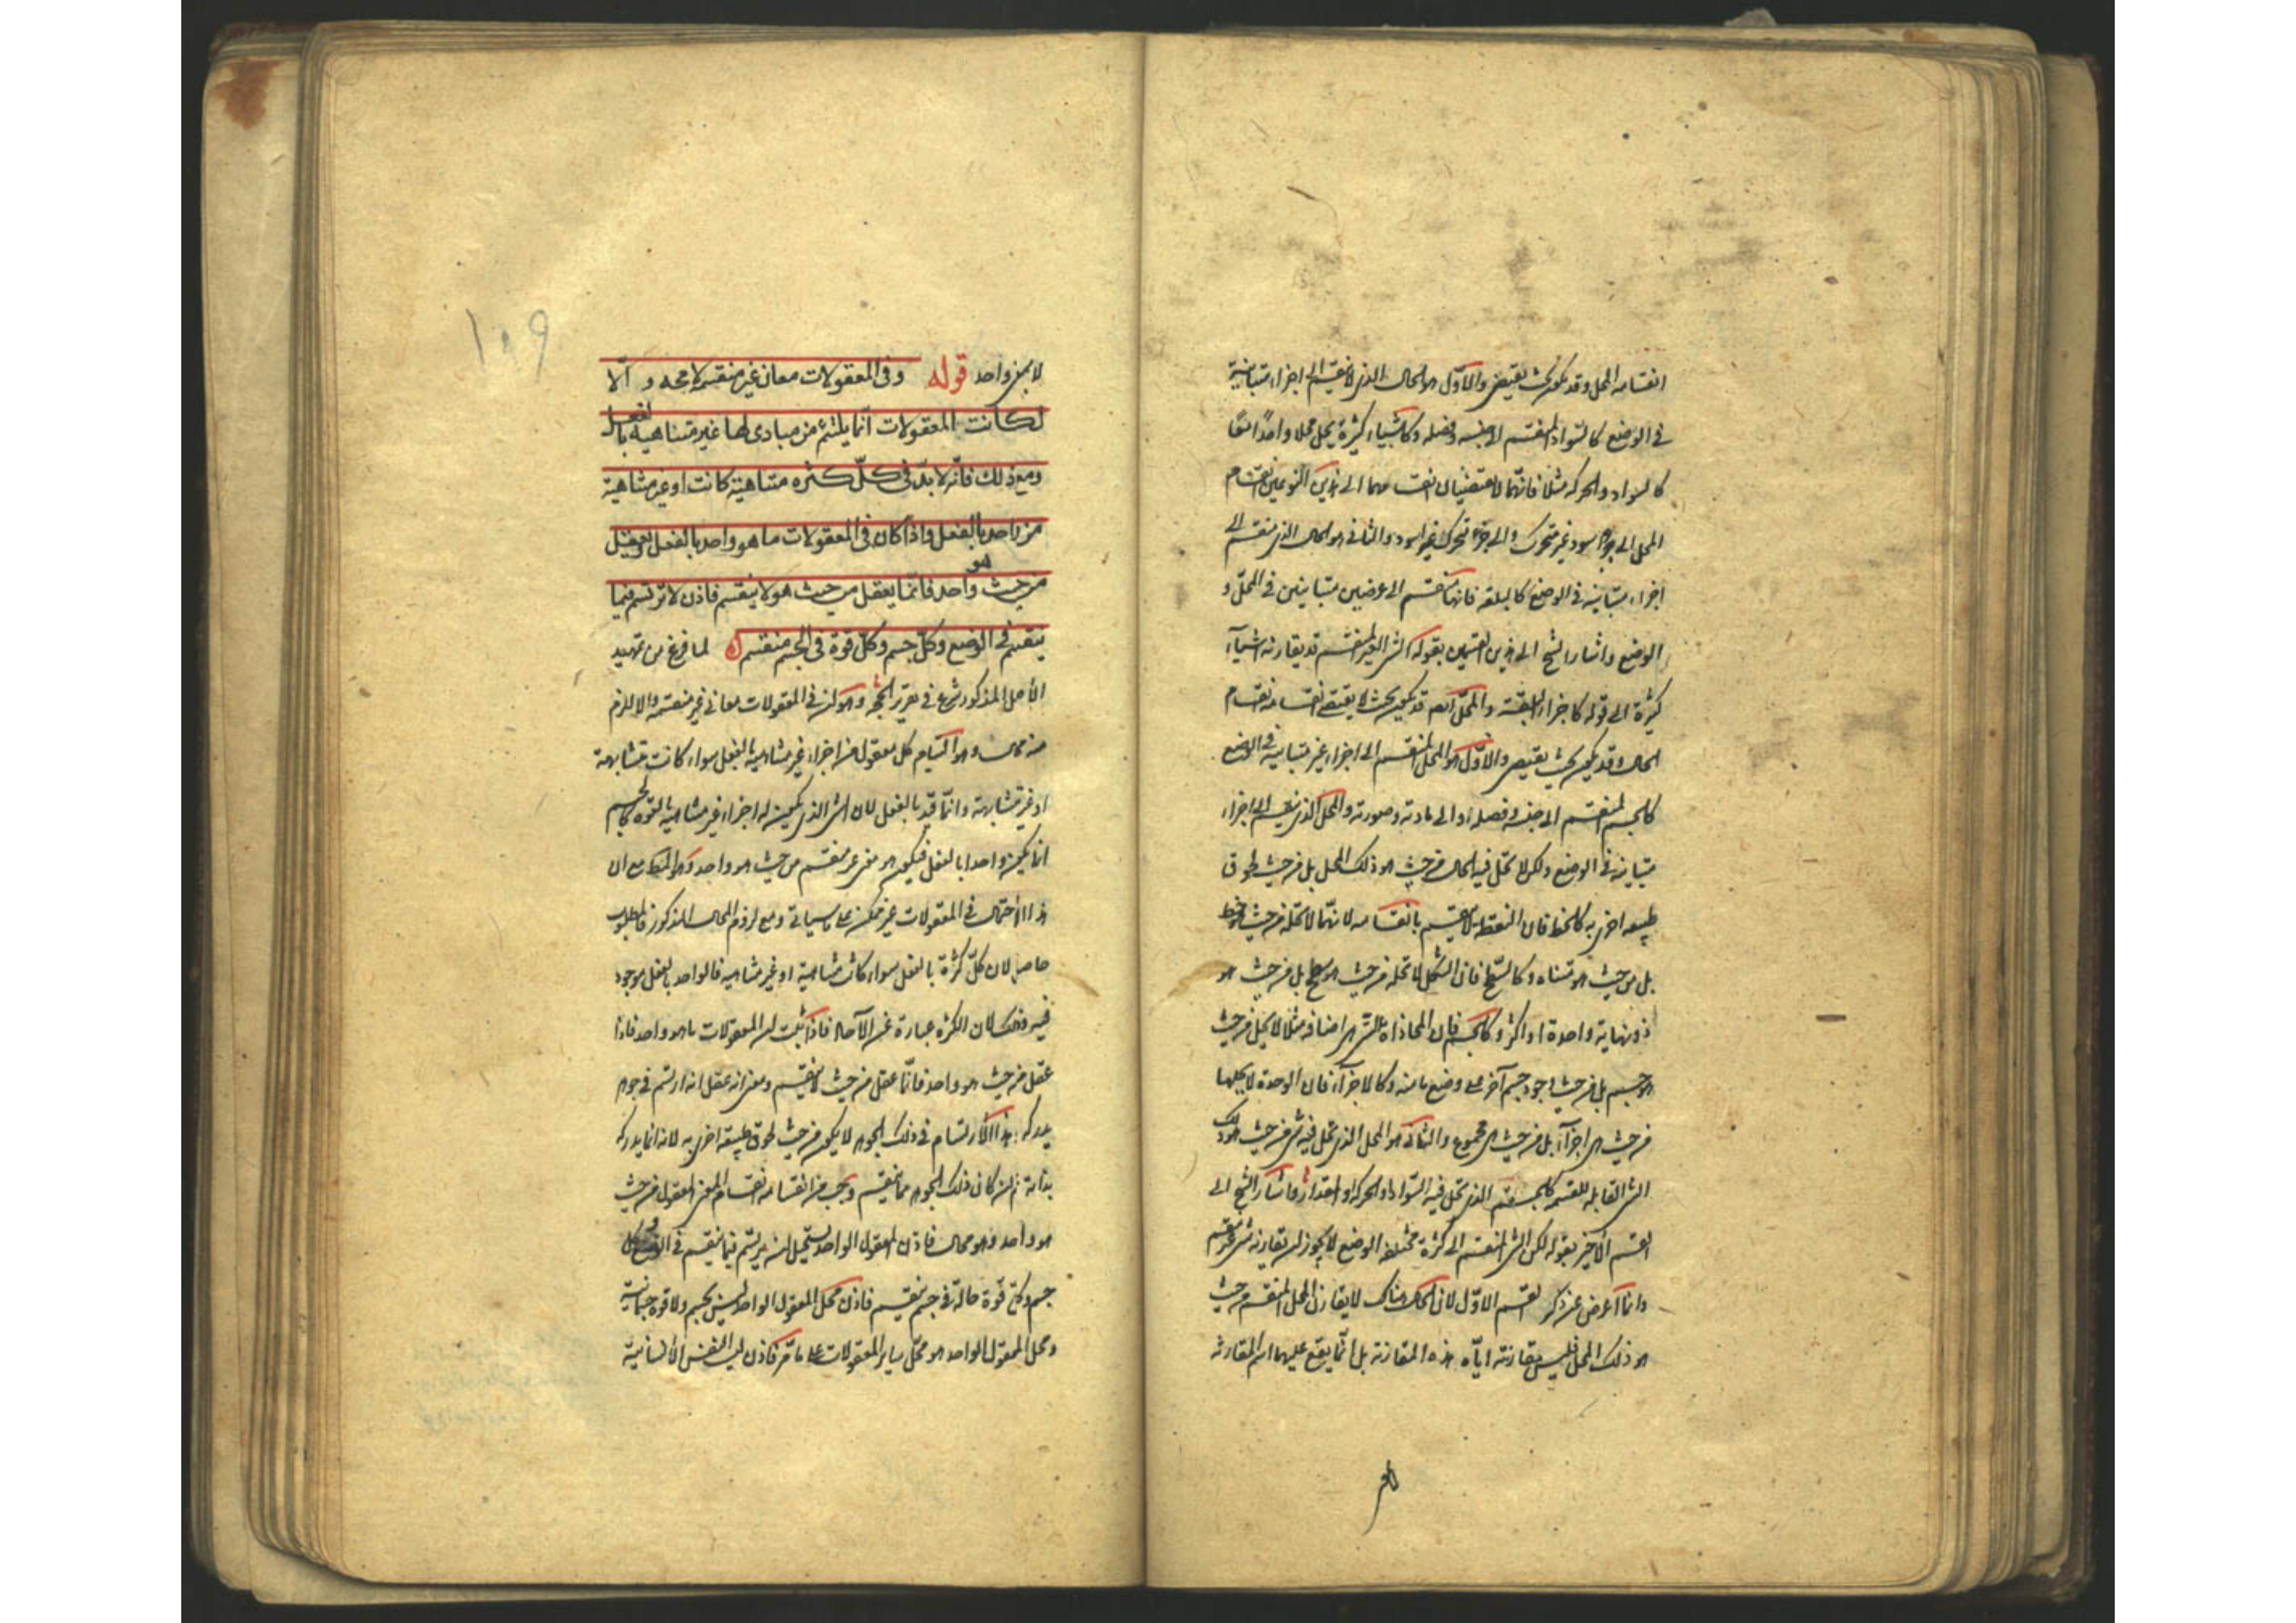 انقسامه المحل وقد يكون بحيث يقتضى والاول هو الحال الذى لا ينقسم الى اجزاء متباينة
فى الوضع كالسواد المنقسم الى جنسه وفصله وكاشياء كثيرة يحل محلا واحدا معا
كالسواد والحركة مثلا فانهما لا يقتضيان انقسامهما الى هذين النوعين انقسام
المحل الى جزء اسود غير متحرك والى جزء متحرك غير اسود والثانى هو الحال الذى ينقسم الى
اجزاء متباينة فى الوضع كالبلقة فانها تنقسم الى عرضين متباينين فى المحل و
الوضع واشار الشيخ الى هذين القسمين بقوله الشئ الغير المنقسم قد يقارنه اشياء
كثيرة الى قوله كاجزاء البلقة والمحل ايضا قد يكون بحيث لا يقتضى انقسامه انقسام
الحال وقد يكون بحيث يقتضى والاول هو المحل المنقسم الى اجزاء غير متباينة فى الوضع
كالجسم المنقسم الى جنسه وفصله او الى مادته وصورته والمحل الذى ينقسم الى اجزاء
متباينة فى الوضع ولكن لا تحل فيه الحال من حيث هو ذلك المحل بل من حيث لحوق
طبيعه اخرى به كالخط فان النقطة لا تنقسم بانقسامه لانها لا تحله من حيث هو خط
بل من حيث هو متناه وكالسطح فان الشكل لا تحله من حيث هو سطح بل من حيث هو
ذو نهاية واحدة او اكثر وكالجسم فان المحاذاة التى هى اضافه مثلا لا يحل من حيث
هو جسم بل من حيث وجود جسم آخر على وضع ما منه وكالاجزاء فان الوحدة لا يحلها
من حيث هى اجزاء بل من حيث هى مجموع والثانى هو المحل الذى تحل فيه شئ من حيث هو ذلك
الشئ القابل للقسمة كالجسم الذى تحل فيه السواد او الحركة او المقدار واشار الشيخ الى
القسم الاخير بقوله لكن الشئ المنقسم الى كثرة مختلفة الوضع لا يجوز ان يقارنه شئ غير منقسم
وانما اعرض عن ذكر القسم الاول لان الحال هناك لا يقارن المحل المنقسم من حيث
هو ذلك المحل فليس مقارنته اياه هذه المقارنة بل انما يقع عليهما اسم المقارنة
١٠٩
لا بمعنى واحد قوله وفى المعقولات معان غير منقسمة لا محه و الا
لكانت المعقولات انما يلتئم من مبادى لها غير متناهية بالفعل
ومع ذلك فانه لا بد فى كل كثره متناهية كانت او غير متناهية
من واحد بالفعل واذا كان فى المعقولات ما هو واحد بالفعل ويعقل
من حيث هو واحد فانما يعقل من حيث هو لا ينقسم فاذن لا ترتسم فيما
ينقسم فى الوضع وكل جسم وكل قوة فى الجسم منقسم لما فرغ من تمهيد
الاصل المذكور شرع فى تقرير الحجة وهو ان فى المعقولات معانى غير منقسمة والا للزم
منه محال وهو التيام كل معقول من اجزاء غير متناهية بالفعل سواء كانت متشابهة
او غير متشابهة وانما قيد بالفعل لان الشئ الذى يكون له اجزاء غير متناهية بالقوة كالجسم
انما يكون واحدا بالفعل فيكون هو معنى غير منقسم من حيث هو واحد وهو المط مع ان
هذا الاحتمال فى المعقولات غير ممكن على ما سياتى ومع لزوم المحال المذكور فالمطلوب
حاصل لان كل كثرة بالفعل سواء كانت متناهية او غير متناهية فالواحد بالفعل موجود
فيه وذلك لان الكثرة عبارة عن الآحاد فاذا ثبت ان المعقولات ما هو واحد فاذا
عقل من حيث هو واحد فانما عقل من حيث لا ينقسم ومعنى انه عقل انه ارتسم فى جوهر
يدركه هذا الارتسام فى ذلك الجوهر لا يكون من حيث لحوق طبيعة اخرى به لانه انما يدركه
بذاته ثم ان كان ذلك الجوهر مما ينقسم وجب من انقسامه انقسام المعنى المعقول من حيث
هو واحد وهو محال فاذن المعقول الواحد يستحيل ان يرتسم فيما ينقسم فى الوضع وكل
جسم وكل قوة حالة فى جسم ينقسم فاذن محل المعقول الواحد ليس بجسم ولا قوة جسمانية
ومحل المعقول الواحد هو محل ساير المعقولات على ما مر فاذن ليست النفس الانسانية